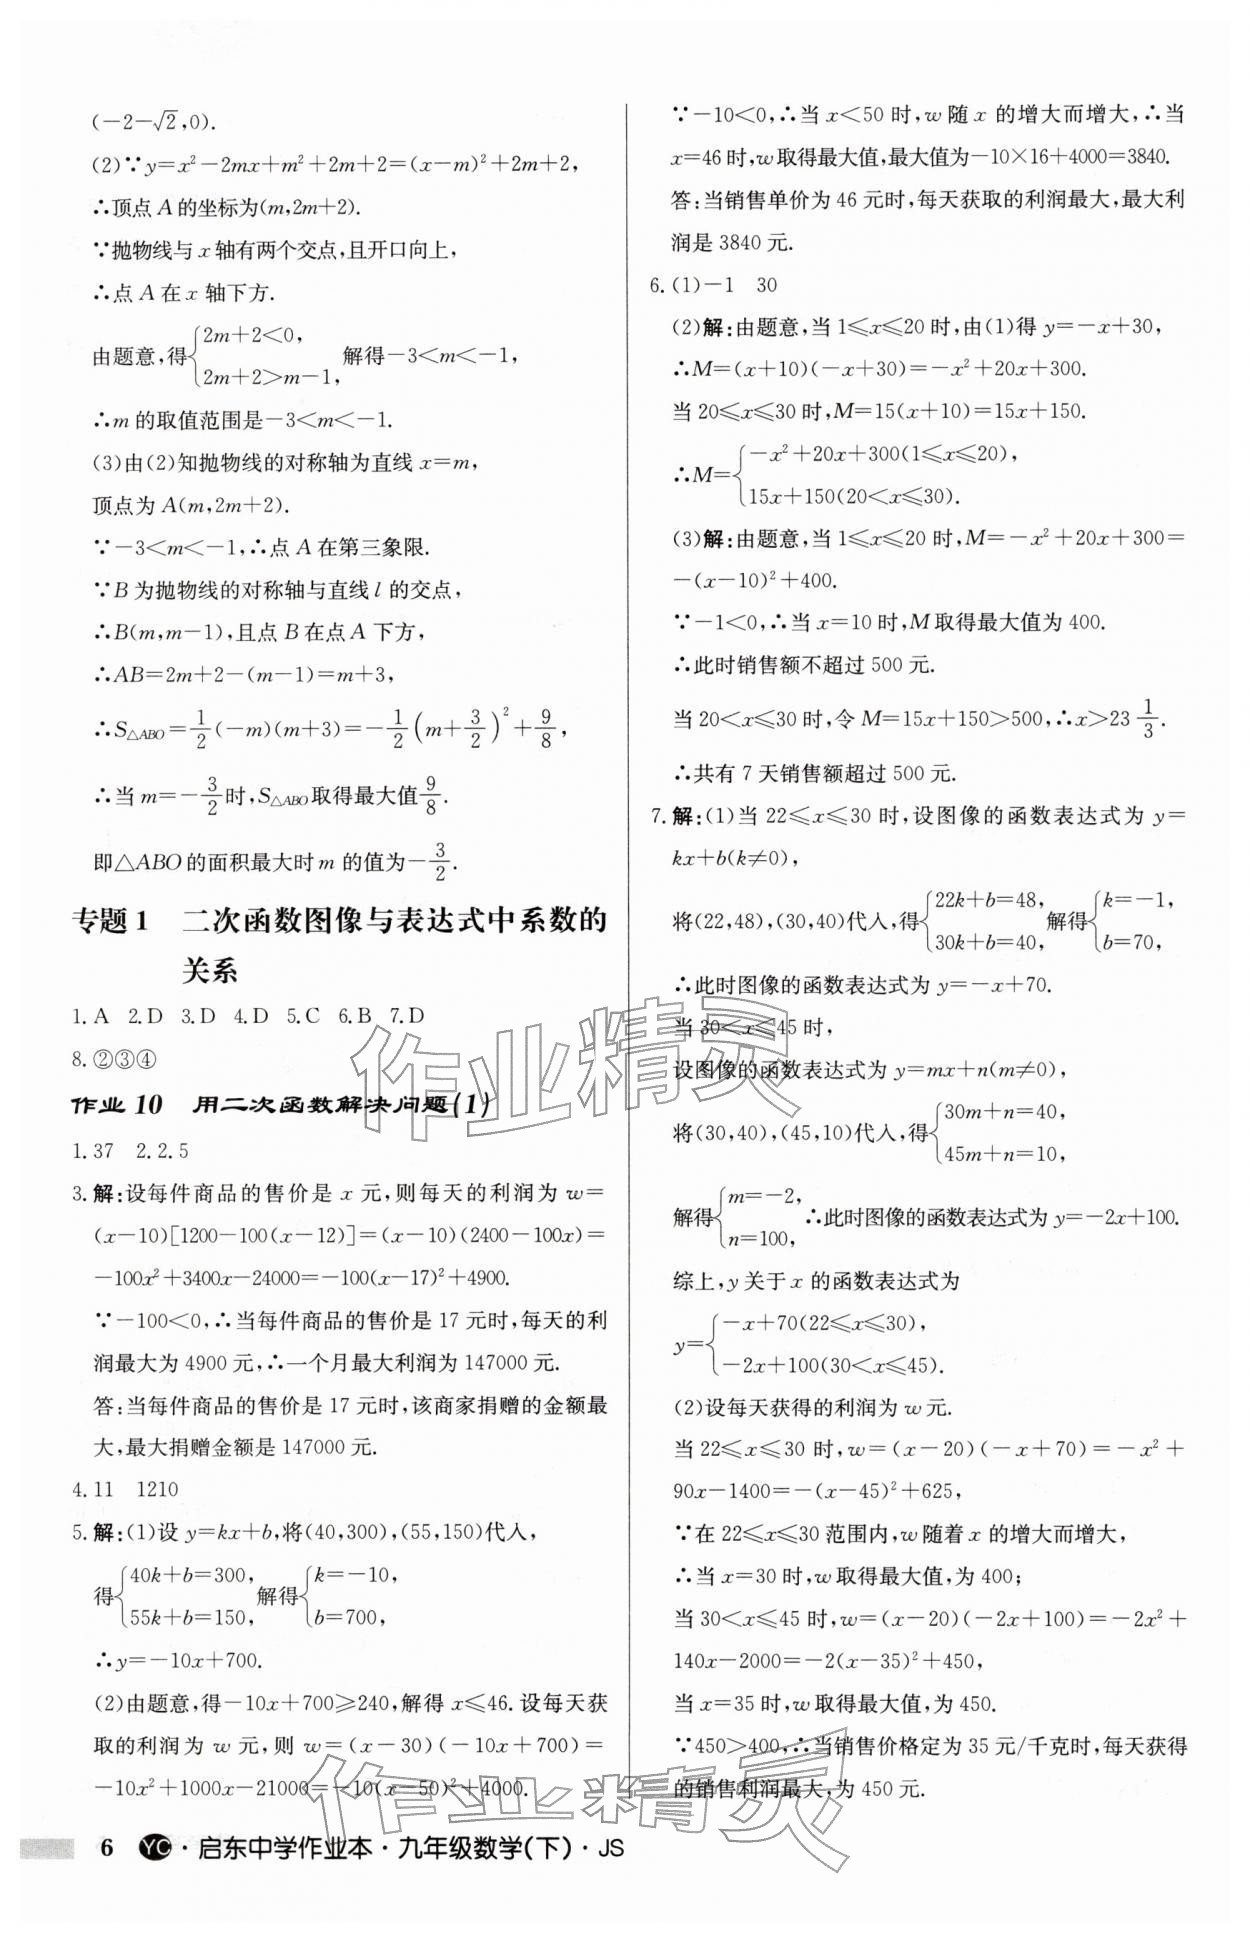 (-2-√2,0).
(2)∵y=x²-2mx+m²+2m+2=(x-m)²+2m+2,
∴顶点 A 的坐标为(m,2m+2).
∵抛物线与 x 轴有两个交点,且开口向上,
∴点 A 在 x 轴下方.
由题意,得{2m+2<0, 2m+2>m-1, 解得-3<m<-1,
∴m 的取值范围是-3<m<-1.
(3)由(2)知抛物线的对称轴为直线 x=m,
顶点为 A(m,2m+2).
∵-3<m<-1,∴点 A 在第三象限.
∵B 为抛物线的对称轴与直线 l 的交点,
∴B(m,m-1),且点 B 在点 A 下方,
∴AB=2m+2-(m-1)=m+3,
∴S△ABO=1/2(-m)(m+3)=-1/2(m+3/2)²+9/8,
∴当 m=-3/2时,S△ABO取得最大值9/8.
即△ABO的面积最大时 m 的值为-3/2.
专题 1 二次函数图像与表达式中系数的
关系
1. A 2. D 3. D 4. D 5. C 6. B 7. D
8. ②③④
作业 10 用二次函数解决问题(1)
1. 37 2. 2.5
3. 解:设每件商品的售价是 x 元,则每天的利润为 w=
(x-10)[1200-100(x-12)]=(x-10)(2400-100x)=
-100x²+3400x-24000=-100(x-17)²+4900.
∵-100<0,∴当每件商品的售价是 17 元时,每天的利
润最大为 4900 元,∴一个月最大利润为 147000 元.
答:当每件商品的售价是 17 元时,该商家捐赠的金额最
大,最大捐赠金额是 147000 元.
4. 11 1210
5. 解:(1)设 y=kx+b,将(40,300),(55,150)代入,
得{40k+b=300, 55k+b=150, 解得{k=-10, b=700,
∴y=-10x+700.
(2)由题意,得-10x+700≥240,解得 x≤46. 设每天获
取的利润为 w 元,则 w=(x-30)(-10x+700)=
-10x²+1000x-21000=-10(x-50)²+4000.
∵-10<0,∴当 x<50 时,w 随 x 的增大而增大,∴当
x=46 时,w取得最大值,最大值为-10×16+4000=3840.
答:当销售单价为 46 元时,每天获取的利润最大,最大利
润是 3840 元.
6. (1)-1 30
(2)解:由题意,当 1≤x≤20 时,由(1)得 y=-x+30,
∴M=(x+10)(-x+30)=-x²+20x+300.
当 20≤x≤30 时,M=15(x+10)=15x+150.
∴M={-x²+20x+300(1≤x≤20), 15x+150(20<x≤30).
(3)解:由题意,当 1≤x≤20 时,M=-x²+20x+300=
-(x-10)²+400.
∵-1<0,∴当 x=10 时,M取得最大值为 400.
∴此时销售额不超过 500 元.
当 20<x≤30 时,令 M=15x+150>500,∴x>23 1/3.
∴共有 7 天销售额超过 500 元.
7. 解:(1)当 22≤x≤30 时,设图像的函数表达式为 y=
kx+b(k≠0),
将(22,48),(30,40)代入,得{22k+b=48, 30k+b=40, 解得{k=-1, b=70,
∴此时图像的函数表达式为 y=-x+70.
当 30<x≤45 时,
设图像的函数表达式为 y=mx+n(m≠0),
将(30,40),(45,10)代入,得{30m+n=40, 45m+n=10,
解得{m=-2, n=100, ∴此时图像的函数表达式为 y=-2x+100.
综上,y 关于 x 的函数表达式为
y={-x+70(22≤x≤30), -2x+100(30<x≤45).
(2)设每天获得的利润为 w 元.
当 22≤x≤30 时,w=(x-20)(-x+70)=-x²+
90x-1400=-(x-45)²+625,
∵在 22≤x≤30 范围内,w 随着 x 的增大而增大,
∴当 x=30 时,w 取得最大值,为 400;
当 30<x≤45 时,w=(x-20)(-2x+100)=-2x²+
140x-2000=-2(x-35)²+450,
当 x=35 时,w 取得最大值,为 450.
∵450>400,∴当销售价格定为 35 元/千克时,每天获得
的销售利润最大,为 450 元.
作业精灵
作业精灵
6 YC·启东中学作业本·九年级数学(下)·JS